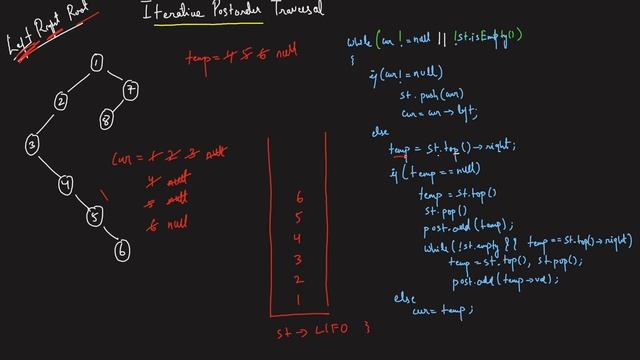 Iterative Postorder Traversal
Left Right Root
temp = 4 5 6 null
1
2
7
8
3
4
5
6
cur = 1 2 3 null
4 null
5 null
6 null
6
5
4
3
2
1
st → LIFO }
while (cur != null || !st.isEmpty())
{
if (cur != null)
st.push(cur)
cur = cur → left;
else
temp = st.top() → right;
if (temp == null)
temp = st.top()
st.pop()
post.add(temp);
while (!st.empty && temp == st.top() → right)
temp = st.top(), st.pop();
post.add(temp → val);
else
cur = temp;